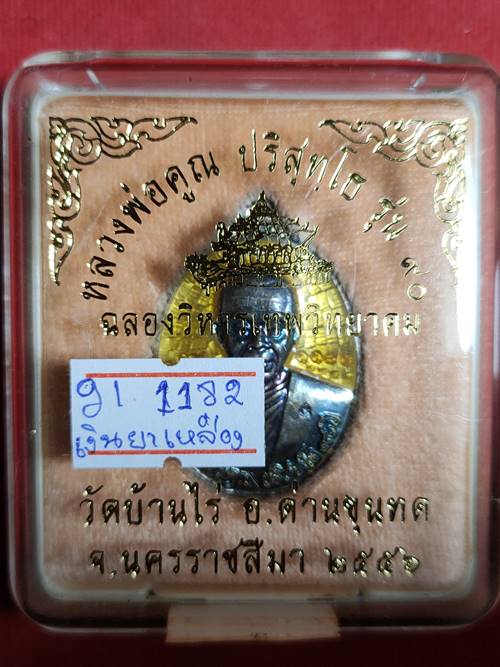 หลวงพ่อคูณ ปริสุทฺโธ รุ่น ๙๐
ฉลองวิหารเทพวิทยาคม
91. 1182
เงินยาเหลือง
วัดบ้านไร่ อ.ด่านขุนทด
จ.นครราชสีมา ๒๕๕๖